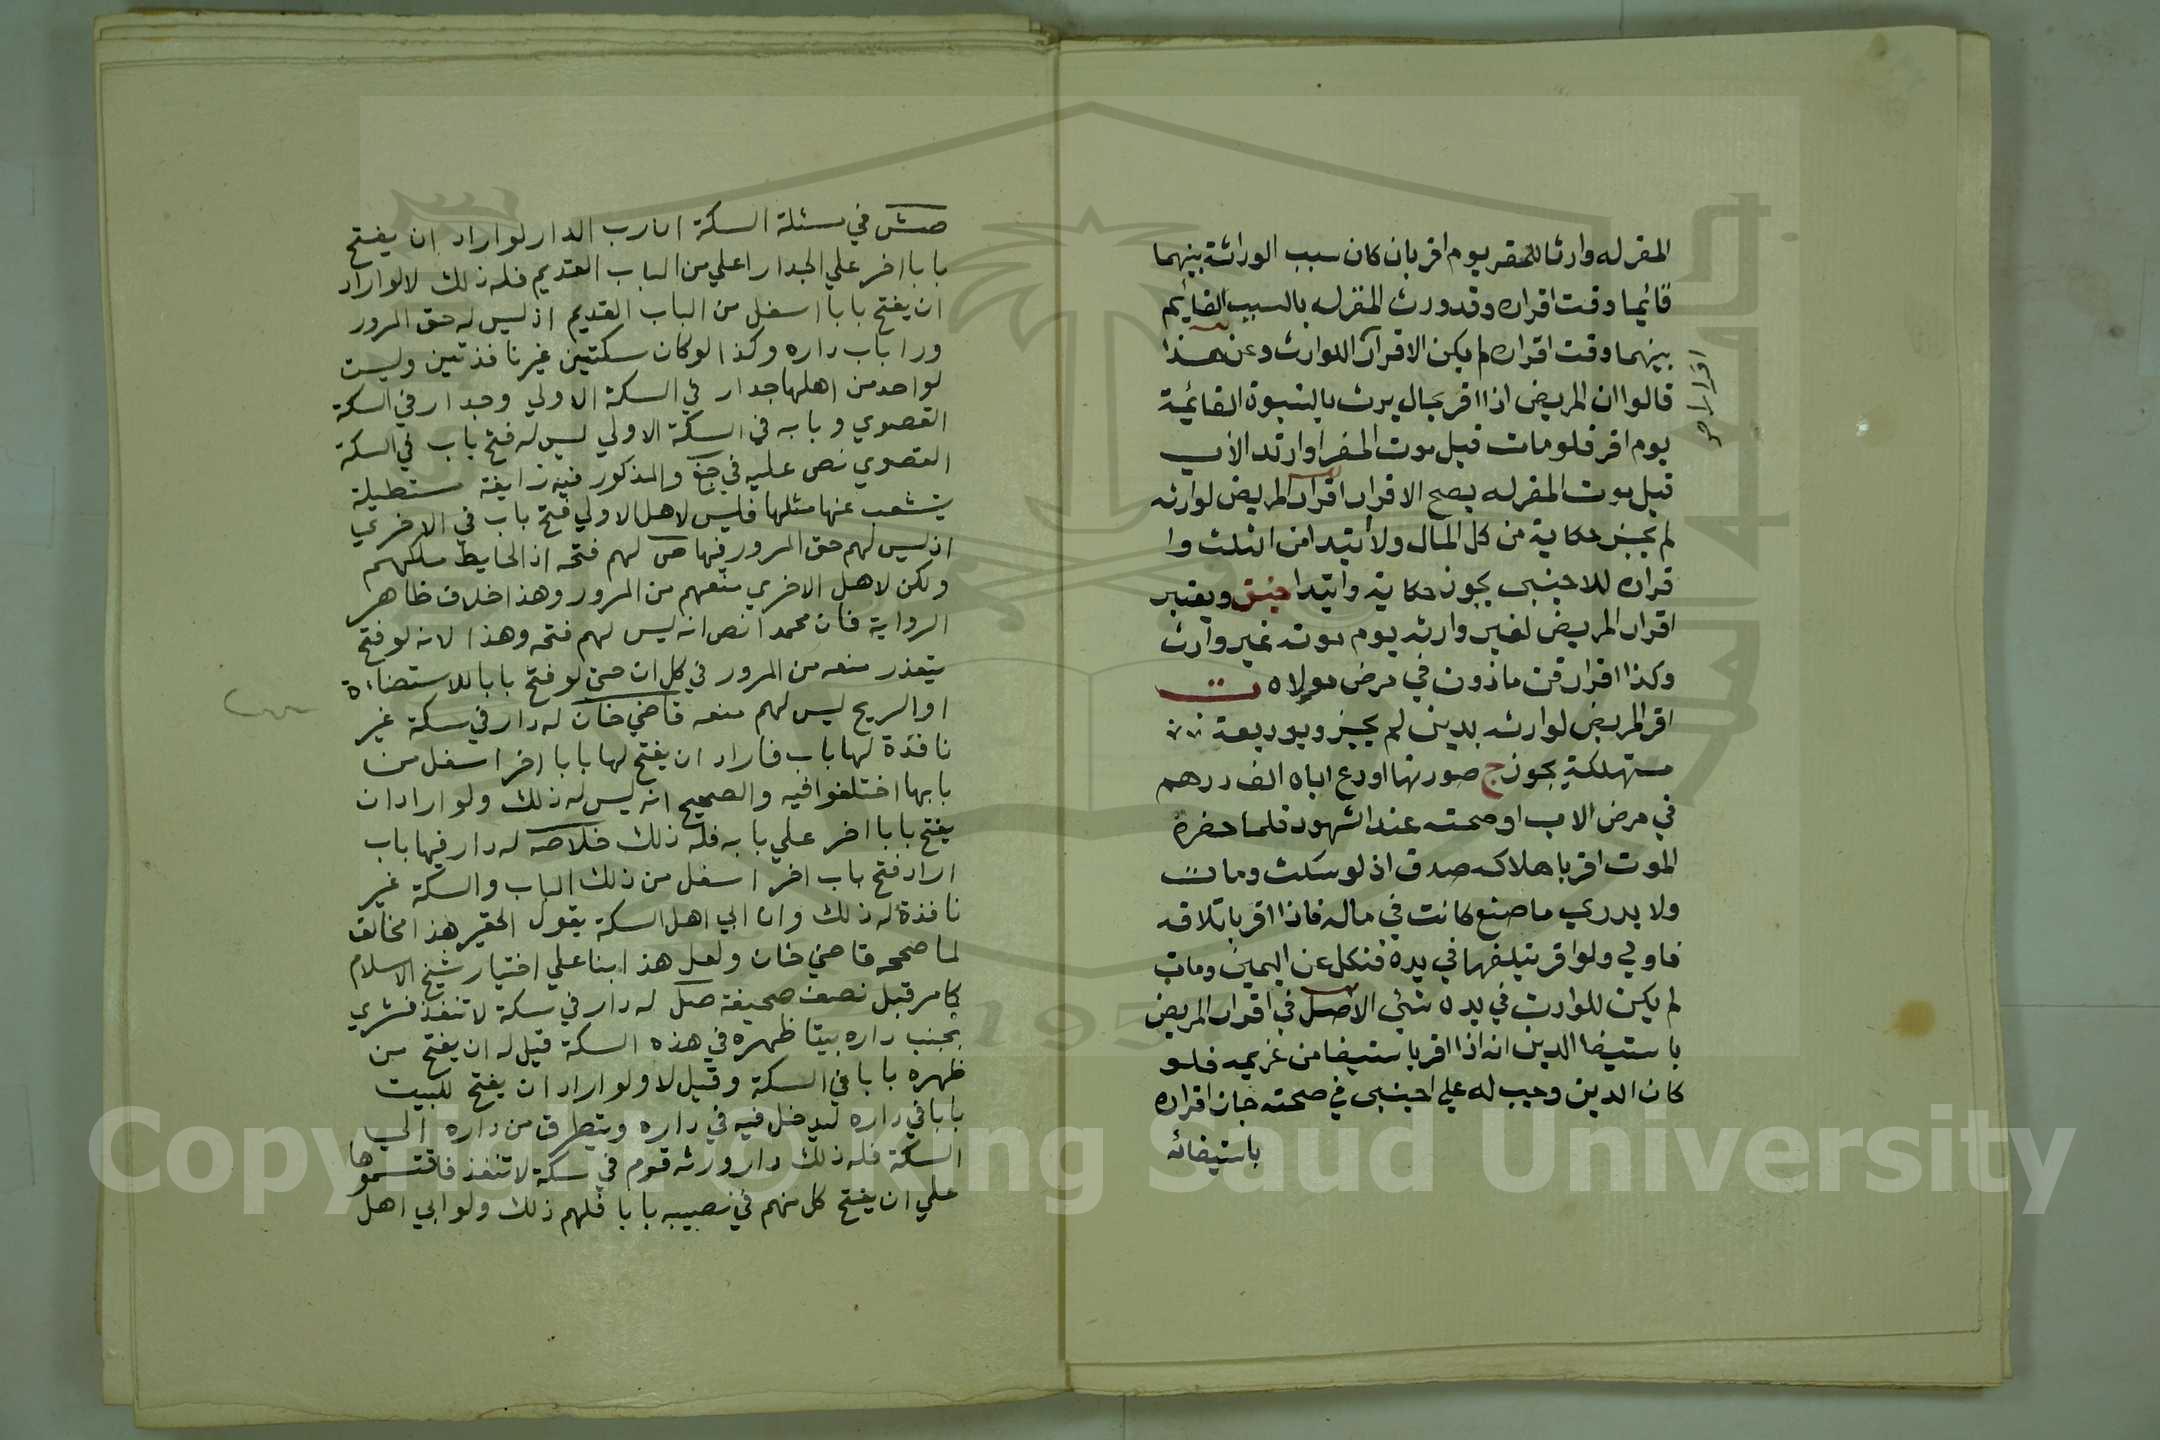 المقر له وارثا للمقر يوم اقر بان كان سبب الوراثة بينهما
قائيما وقت اقراره وقد ورث المقر له بالسبب القائيم
بينهما وقت اقراره لم يكن الاقرار للوارث وعن هذا
قالوا ان المريض اذا اقر بحال يرث بالبنوة القائمية
يوم اقر فلو مات قبل موت المقر او ارتد الاب
قبل موت المقر له يصح الاقرار اقرار المريض لوارثه
لم يجز حكاية من كل المال ولا ابتدا من الثلث وا
قراره للاجنبى يجوز حكاية وابتدا ويعتبر
اقرار المريض لغير وارثه يوم موته غير وارث
وكذا اقرار قن ماذون في مرض مولاه ت
اقر المريض لوارثه بدين لم يجز وبوديعة
مستهلكة يجوز ج صورتها اودع اباه الف درهم
في مرض الاب او صحته عند الشهود فلما حضره
الموت اقر باهلاكه صدق اذ لو سكت ومات
ولا يدري ما صنع كانت في ماله فاذا اقر باتلاقه
فاولي ولو اقر بتلفها في يده فنكل عن اليمين ومات
لم يكن للوارث في يده شئي الاصل في اقرار المريض
باستيفا الدين انه اذا اقر باستيفا من غريمه فلو
كان الدين وجب له علي اجنبى في صحته جاز اقراره
باستيفائه
صش في مسئلة السكة ان رب الدار لو اراد ان يفتح
بابا اخر علي الجدار اعلي من الباب القديم فله ذلك لا لو اراد
ان يفتح بابا اسفل من الباب القديم اذ ليس له حق المرور
ورا باب داره وكذا لو كان سكتين غير نافذتين وليست
لواحد من اهلها جدار في السكة الاولي وجدار في السكة
القصوي وبابه في السكة الاولي ليس له فتح باب في السكة
القصوي نص عليه في جغ والمذكور فيه زايغة مستطيلة
يتشعب عنها مثلها فليس لاهل الاولي فتح باب في الاخري
اذ ليس لهم حق المرور فيها ص لهم فتحه اذ الحايط ملكهم
ولكن لاهل الاخري منعهم من المرور وهذا خلاف ظاهر
الرواية فان محمدا نص انه ليس لهم فتحه وهذا لانه لو فتح
يتعذر منعه من المرور في كل ان حتي لو فتح بابا للاستضاءة
او الريح ليس لهم منعه قاضي خان له دار في سكة غير
نافذة لها باب فاراد ان يفتح لها بابا اخر اسفل من
بابها اختلفوا فيه والصحيح انه ليس له ذلك ولو اراد ان
يفتح بابا اخر علي بابه فله ذلك خلاصه له دار فيها باب
اراد فتح باب اخر اسفل من ذلك الباب والسكة غير
نافذة له ذلك وان ابي اهل السكة يقول الحقير هذا مخالف
لما صححه قاضي خان ولعل هذا بنا علي اختيار شيخ الاسلام
كامر قبل نصف صحيفة صل له دار في سكة لا تنفذ فشري
بجنب داره بيتا ظهره في هذه السكة قيل له ان يفتح من
ظهره بابا في السكة وقيل لا ولو اراد ان يفتح للبيت
بابا في داره ليدخل فيه في داره ويتطرق من داره الي
السكة فله ذلك دار ورثه قوم في سكة لا تنفذ فاقتسموها
علي ان يفتح كل منهم في نصيبه بابا فلهم ذلك ولو ابي اهل
Copyright © King Saud University
1957